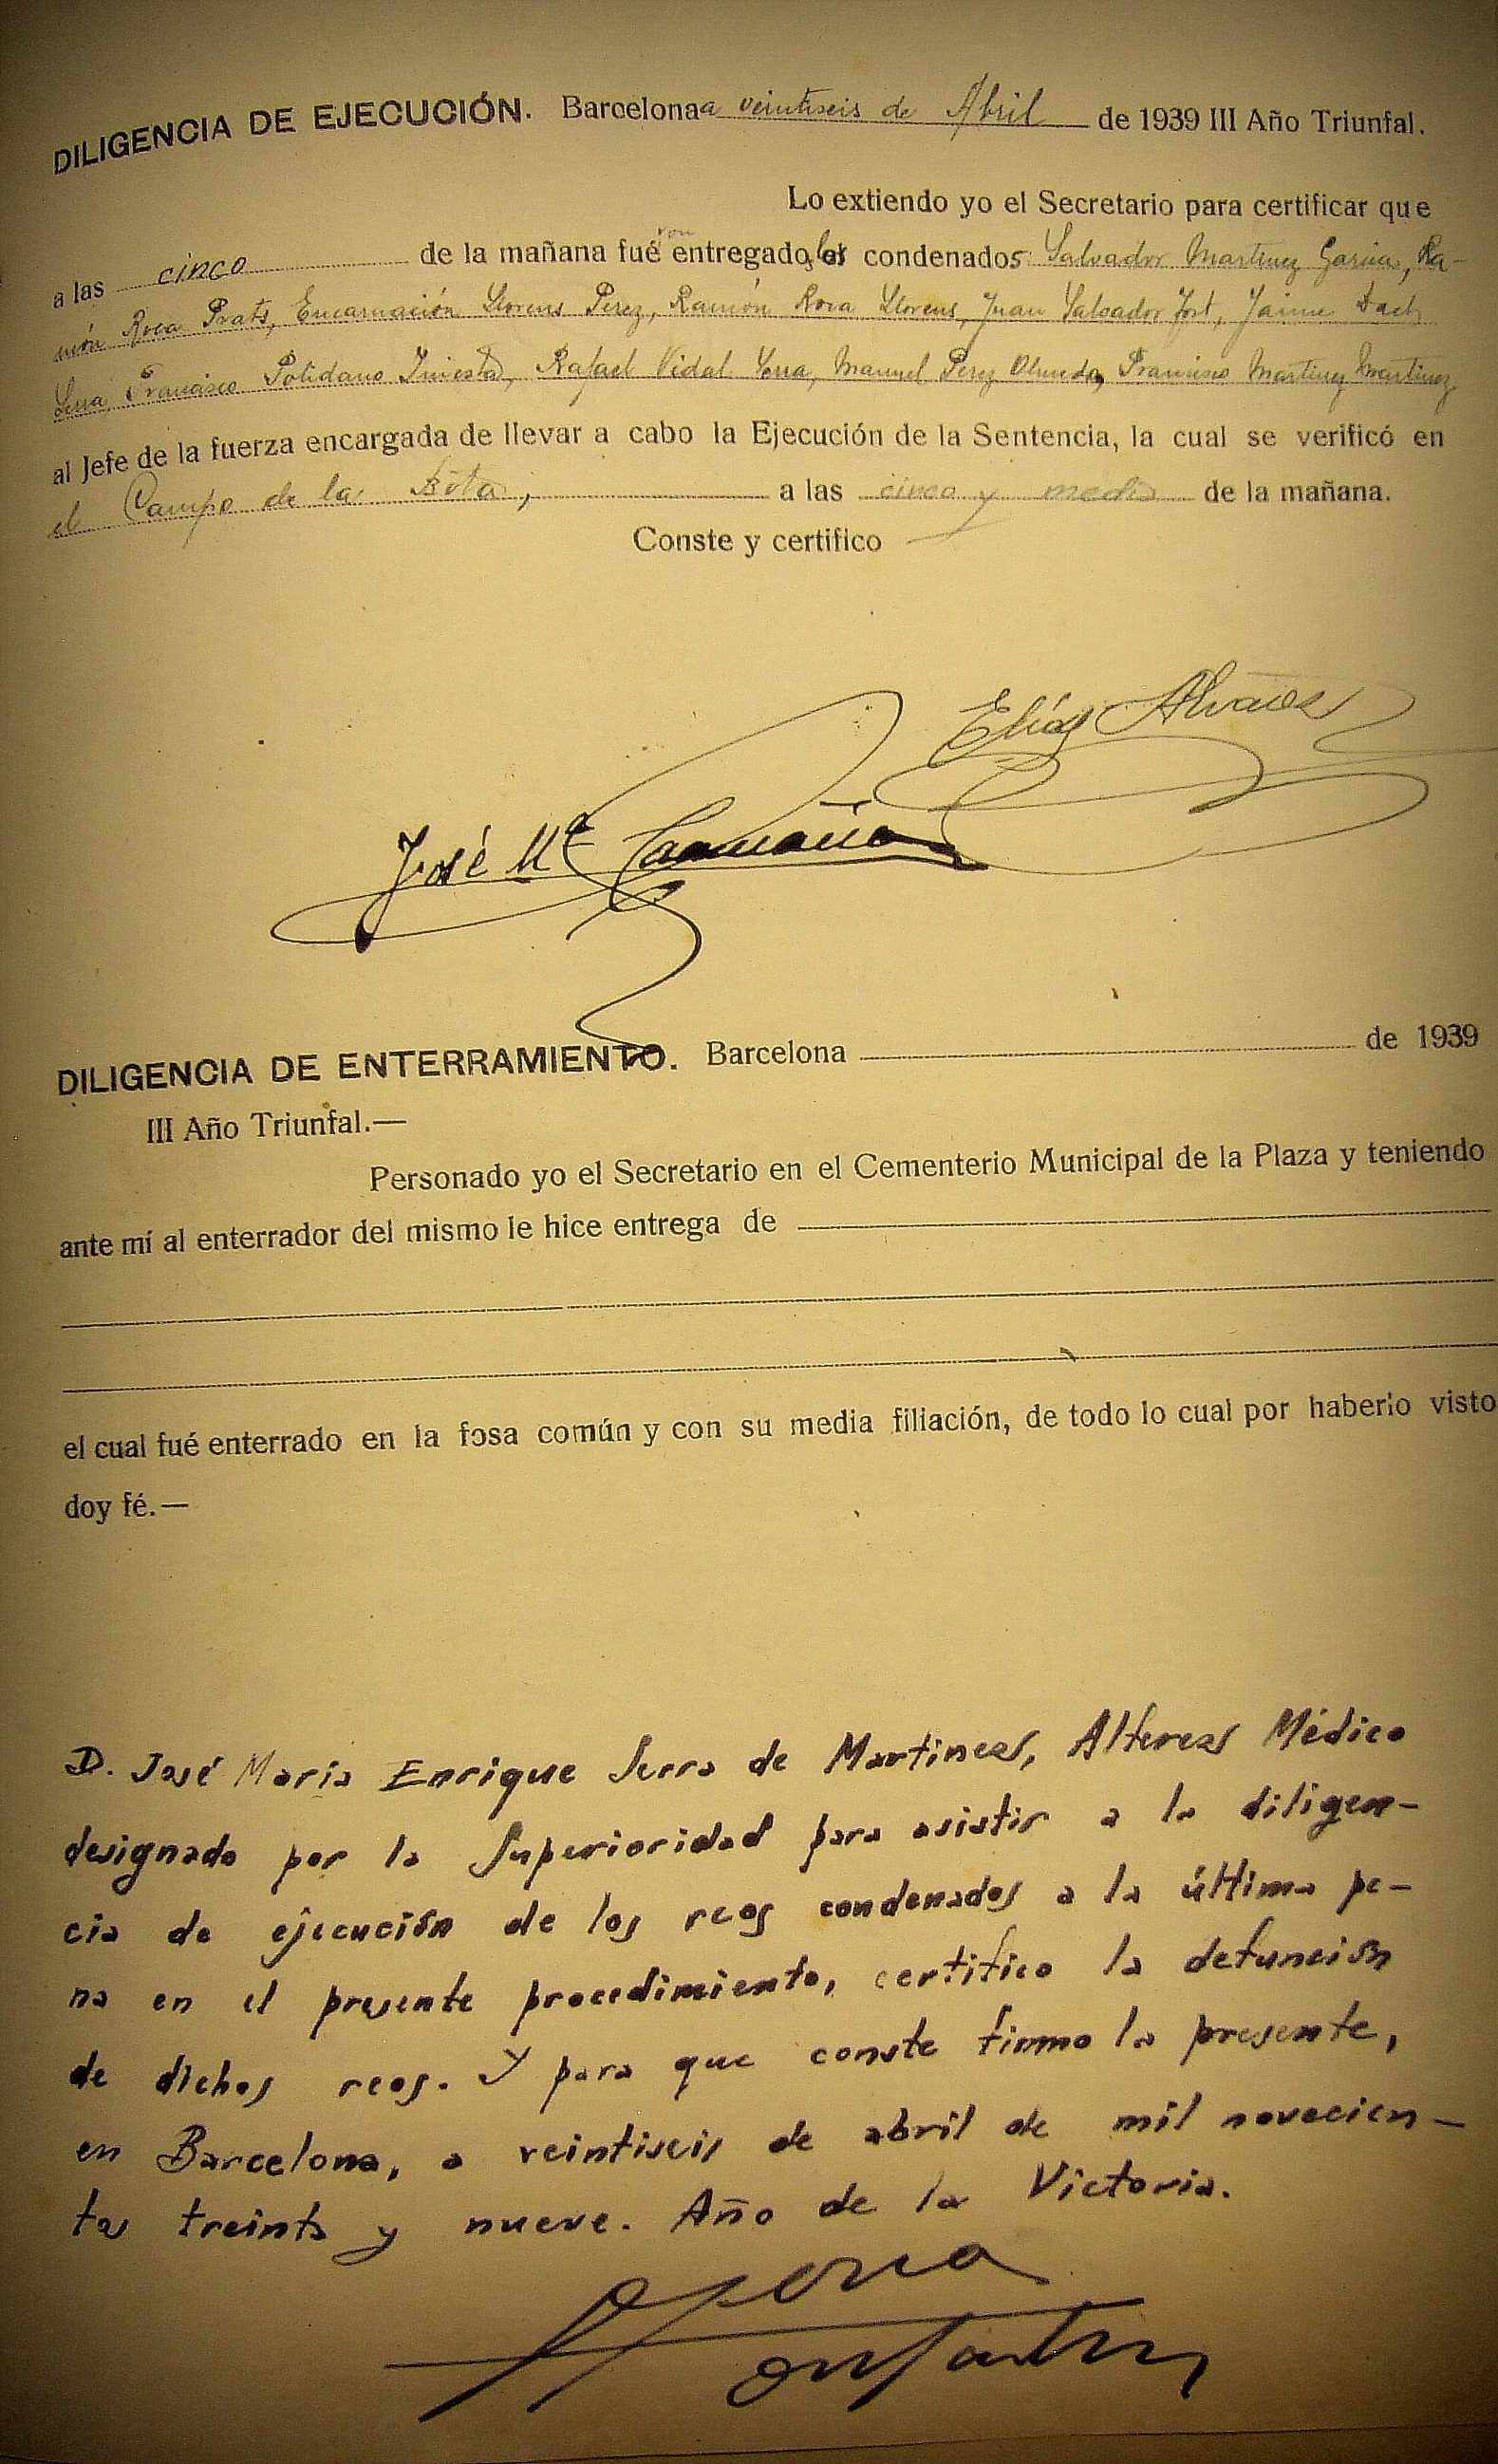 DILIGENCIA DE EJECUCIÓN. Barcelona a veintiseis de Abril de 1939 III Año Triunfal.
Lo extiendo yo el Secretario para certificar que
a las cinco de la mañana fuéron entregados los condenados Salvador Martinez Garcia, Ra-
món Roca Prats, Encarnación Llorens Perez, Ramón Roca Llorens, Juan Salvador Fort, Jaime
Serra, Francisco Polidano Iniesta, Rafael Vidal Manuel Perez Olmedo, Francisco Martinez Martinez
al Jefe de la fuerza encargada de llevar a cabo la Ejecución de la Sentencia, la cual se verificó en
el Campo de la Bota, a las cinco y media de la mañana.
Conste y certifico
Elías Alvarez
José Mª
DILIGENCIA DE ENTERRAMIENTO. Barcelona de 1939
III Año Triunfal.—
Personado yo el Secretario en el Cementerio Municipal de la Plaza y teniendo
ante mí al enterrador del mismo le hice entrega de
el cual fué enterrado en la fosa común y con su media filiación, de todo lo cual por haberlo visto
doy fé.—
D. José María Enrique Serra de Martinez, Alferez Médico
designado por la Superioridad para asistir a la diligen-
cia de ejecución de los reos condenados a la última pe-
na en el presente procedimiento, certifico la defunción
de dichos reos. Y para que conste firmo la presente,
en Barcelona, a veintiseis de abril de mil novecien-
tos treinta y nueve. Año de la Victoria.